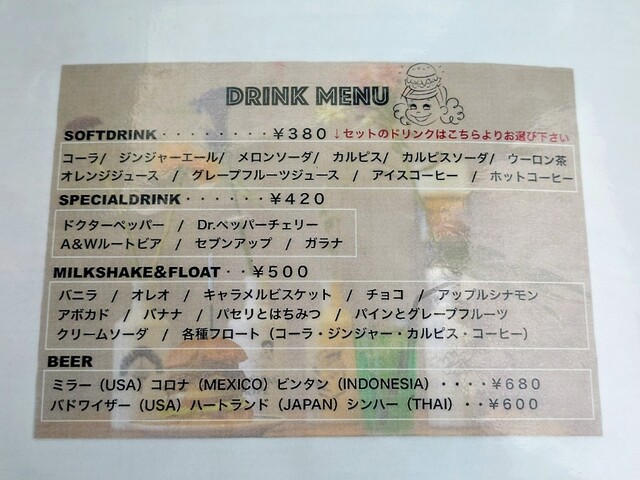 DRINK MENU
SOFTDRINK・・・・・・・・¥380 ↓セットのドリンクはこちらよりお選び下さい
コーラ/ ジンジャーエール/ メロンソーダ/ カルピス/ カルピスソーダ/ ウーロン茶
オレンジジュース / グレープフルーツジュース / アイスコーヒー / ホットコーヒー
SPECIALDRINK・・・・・・¥420
ドクターペッパー / Dr.ペッパーチェリー
A&Wルートビア / セブンアップ / ガラナ
MILKSHAKE&FLOAT・・¥500
バニラ / オレオ / キャラメルビスケット / チョコ / アップルシナモン
アボカド / バナナ / パセリとはちみつ / パインとグレープフルーツ
クリームソーダ / 各種フロート（コーラ・ジンジャー・カルピス・コーヒー）
BEER
ミラー（USA）コロナ（MEXICO）ビンタン（INDONESIA）・・・・¥680
バドワイザー（USA）ハートランド（JAPAN）シンハー（THAI）・・¥600